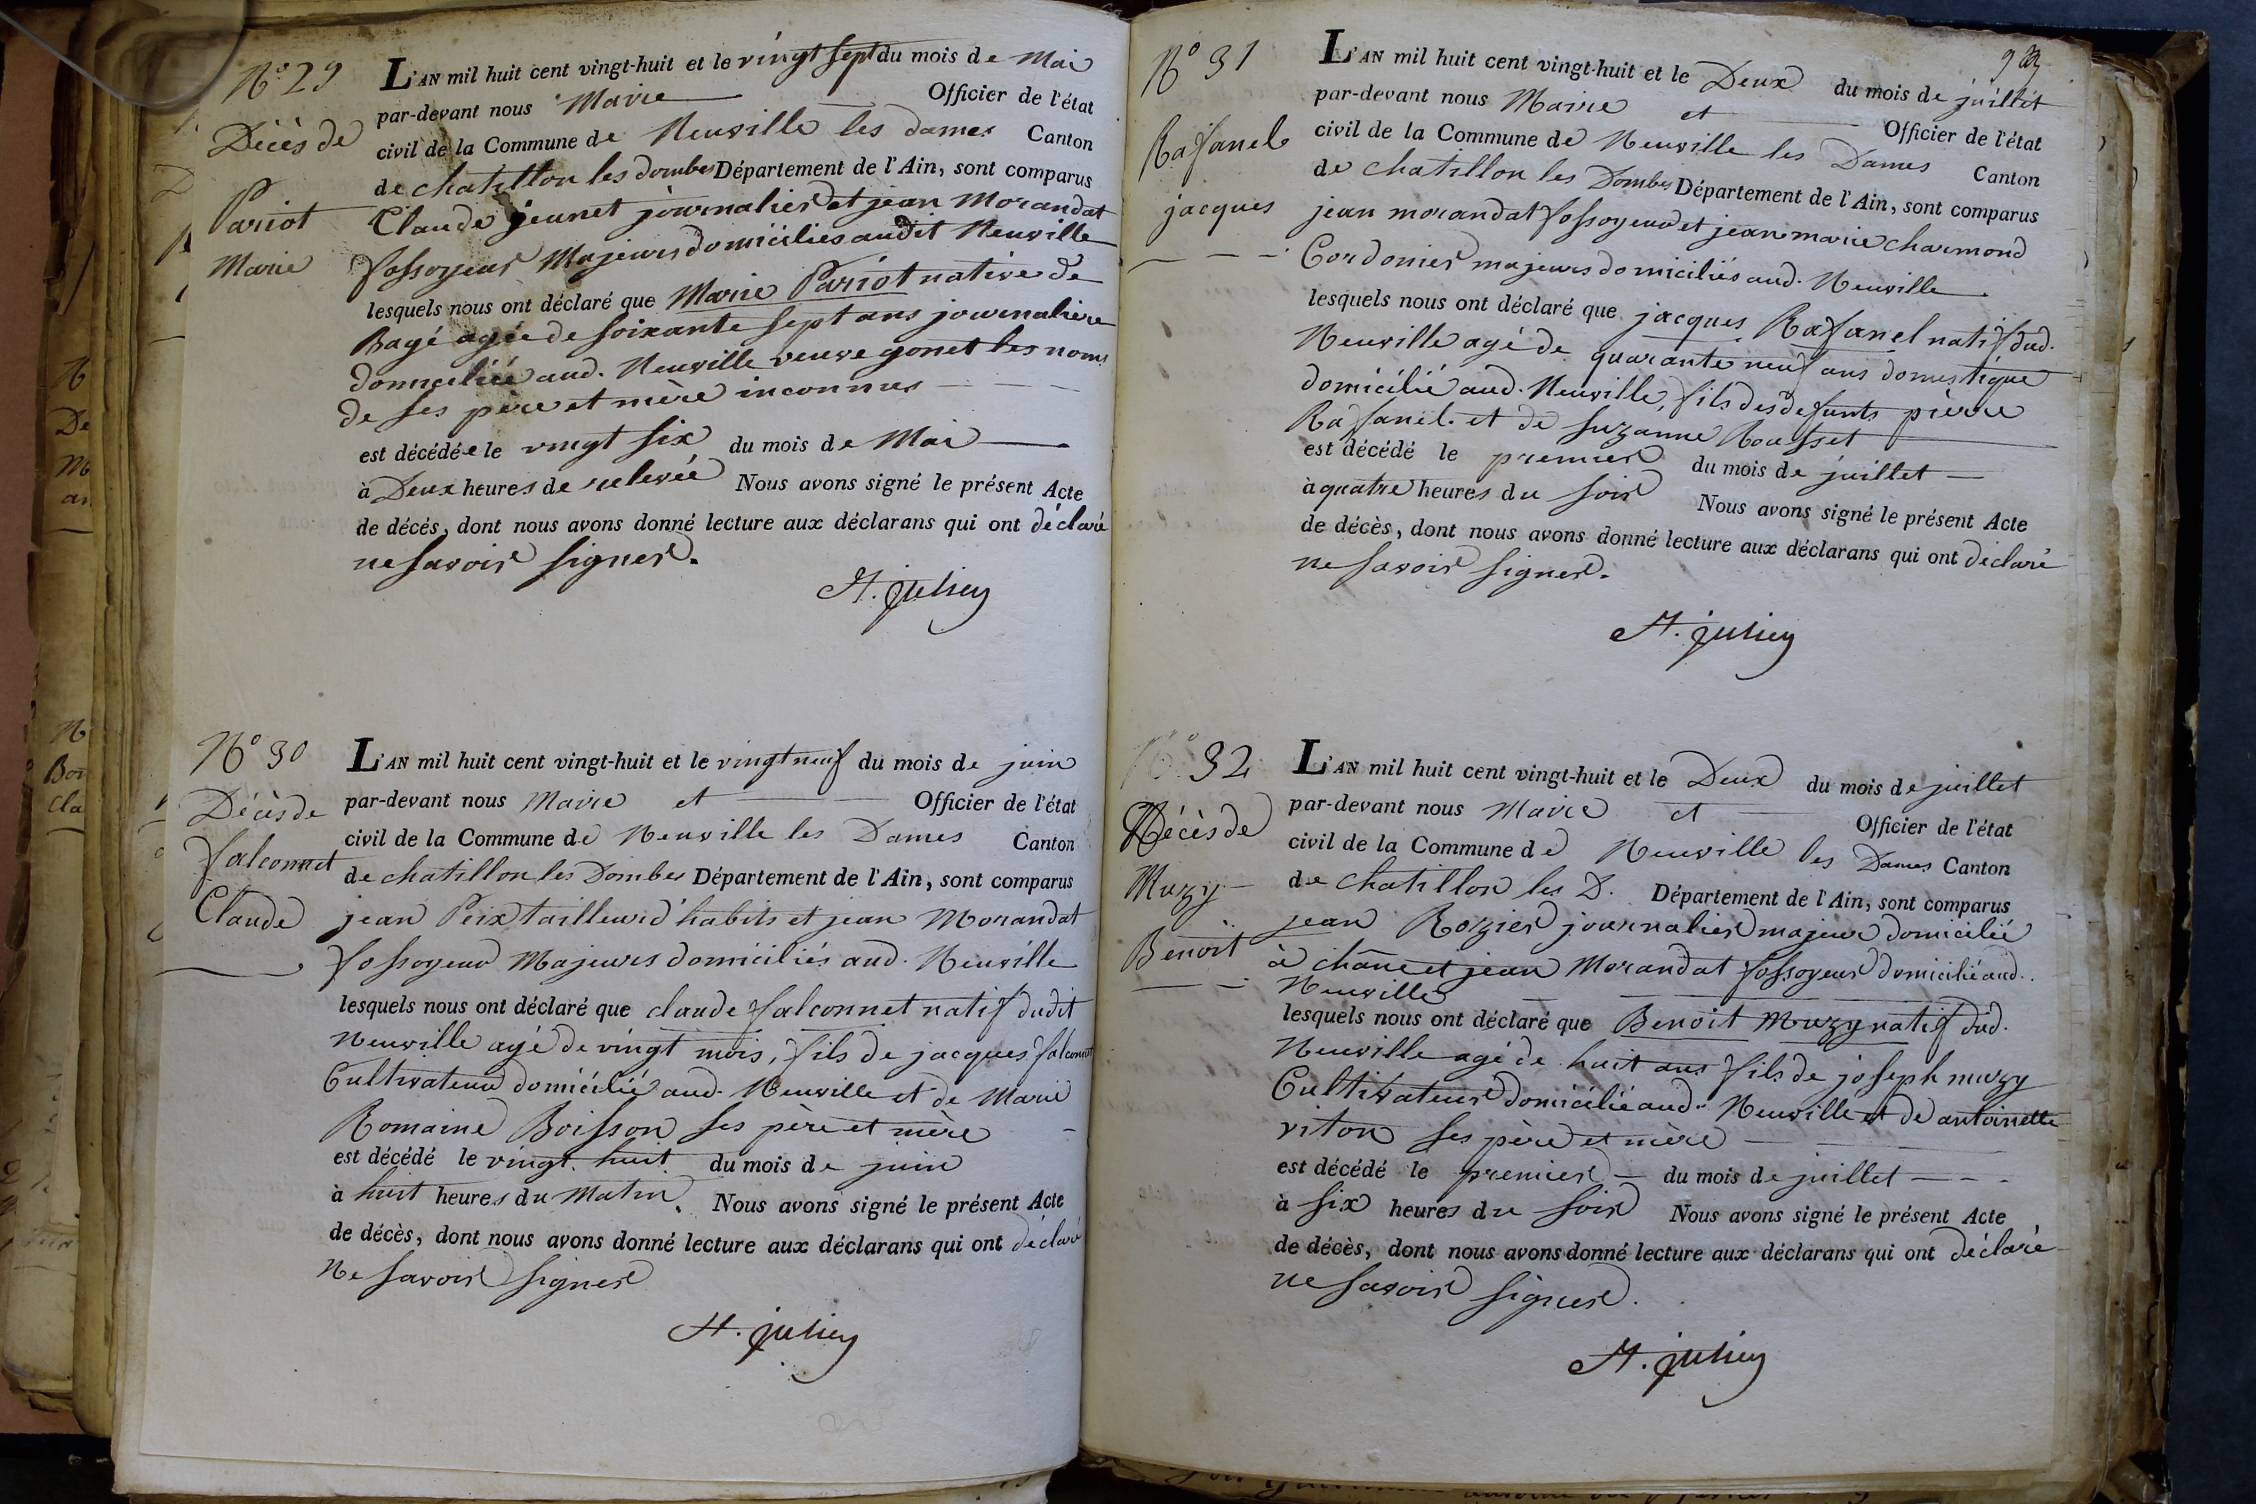 N° 29
Décès de
Pariot
Marie
L'AN mil huit cent vingt-huit et le vingt sept du mois de Mai
par-devant nous Maire Officier de l'état
civil de la Commune de Neuville les dames Canton
de chatillon les dombes Département de l'Ain, sont comparus
Claude jeunet journalier et jean Morandat
fossoyeur Majeurs domiciliés audit Neuville
lesquels nous ont déclaré que Marie Pariot native de
Bagé agée de soixante sept ans journaliere
domiciliée aud. Neuville veuve gonet les noms
de ses père et mère inconnus
est décédée le vingt six du mois de Mai
à Deux heures de relevée Nous avons signé le présent Acte
de décés, dont nous avons donné lecture aux déclarans qui ont déclaré
ne savoir signer.
St. julien
N° 30
Décès de
falconnet
Claude
L'AN mil huit cent vingt-huit et le vingt neuf du mois de juin
par-devant nous Maire et Officier de l'état
civil de la Commune de Neuville les Dames Canton
de chatillon les Dombes Département de l'Ain, sont comparus
jean Peix tailleur d'habits et jean Morandat
fossoyeur Majeurs domiciliés aud. Neuville
lesquels nous ont déclaré que claude falconnet natif dudit
Neuville agé de vingt mois, fils de jacques falconnet
Cultivateur domicilié aud. Neuville et de Marie
Romaine Boisson ses père et mère
est décédé le vingt huit du mois de juin
à huit heures du Matin. Nous avons signé le présent Acte
de décès, dont nous avons donné lecture aux déclarans qui ont déclaré
Ne savoir signer
St. julien
N° 31
Rafanel
jacques
L'AN mil huit cent vingt-huit et le Deux du mois de juillet
par-devant nous Maire et Officier de l'état
civil de la Commune de Neuville les Dames Canton
de chatillon les Dombes Département de l'Ain, sont comparus
jean morandat fossoyeur et jean marie charmond
Cordonier majeurs domiciliés aud. Neuville
lesquels nous ont déclaré que jacques Rafanel natif dud.
Neuville agé de quarante neuf ans domestique
domicilié aud. Neuville, fils des defunts pierre
Rafanel. et de suzanne Rousset
est décédé le premier du mois de juillet
à quatre heures du soir Nous avons signé le présent Acte
de décès, dont nous avons donné lecture aux déclarans qui ont déclaré
ne savoir signer.
St. julien
N° 32
Décès de
Muzy
Benoit
L'AN mil huit cent vingt-huit et le Deux du mois de juillet
par-devant nous Maire et Officier de l'état
civil de la Commune de Neuville les Dames Canton
de Chatillon les D. Département de l'Ain, sont comparus
jean Rozier journalier majeur domicilié
à chane et jean Morandat fossoyeur domicilié aud.
Neuville
lesquels nous ont déclaré que Benoit Muzy natif dud.
Neuville agé de huit ans fils de joseph muzy
Cultivateur domicilié aud. Neuville et de antoinette
viton ses père et mère
est décédé le premier du mois de juillet
à six heures du soir Nous avons signé le présent Acte
de décès, dont nous avons donné lecture aux déclarans qui ont déclaré
ne savoir signer.
St. julien